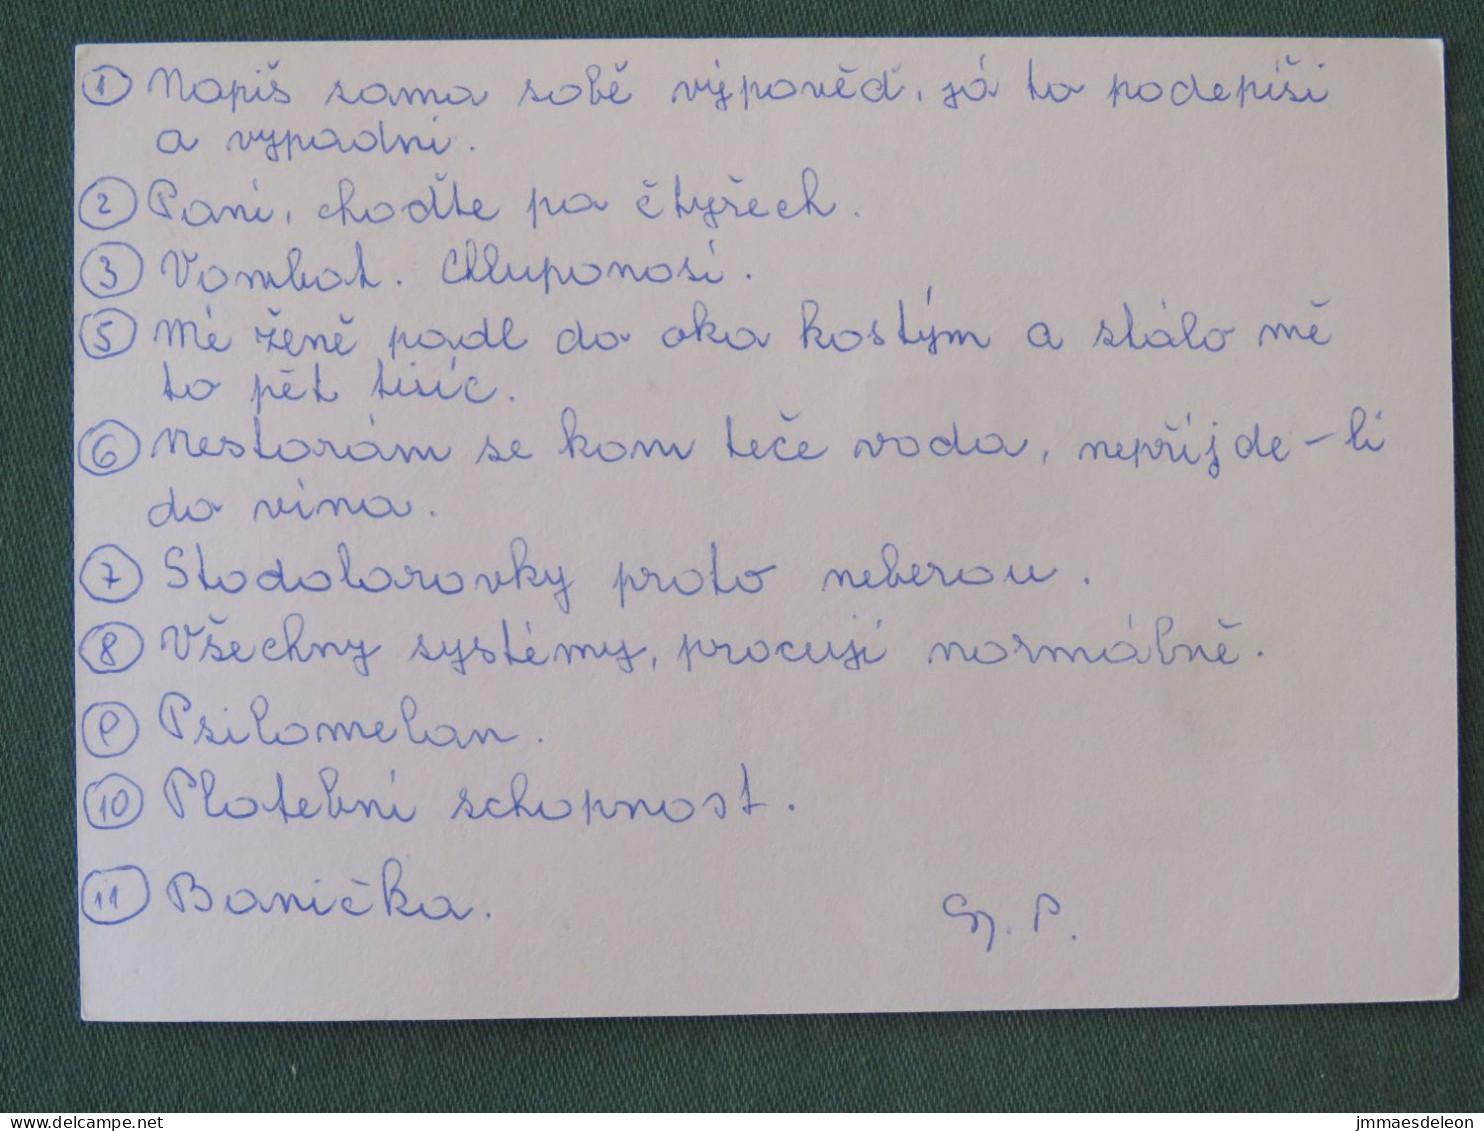 1 Napiš sama sobě výpověď, já to podepíši
a vypadni.
2 Paní, choďte po čtyřech.
3 Vombat. Chluponosi.
5 Mé ženě padl do oka kostým a stálo mě
to pět tisíc.
6 Nestarám se kam teče voda, nepřijde-li
do vína.
7 Stodolarovky proto neberou.
8 Všechny systémy, pracují normálně.
9 Psilomelan.
10 Platební schopnost.
11 Banička.
P.
hippostcard.com
jmmaesdeleon